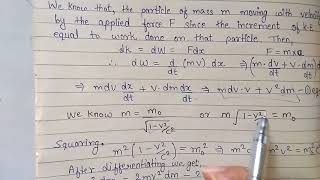 We know that, the particle of mass m moving with velocity
by the applied force F since the increment of K.E
equal to work done on that particle. Then,
dk = dW = Fdx F = ma
∴ dW = d/dt (mv) dx ⇒ (m.dv/dt + v.dm/dt)
⇒ mdv dx/dt + v.dm dx/dt ⇒ mdv.v + v²dm —①
We know m = m₀/√(1-v²/c²) or m√(1-v²/c²) = m₀
Squaring. m²(1-v²/c²) = m₀² ⇒ m²c² - m²v² = m₀²c²
After differentiating we get,
2mc²dm - 2mv²dm - 2